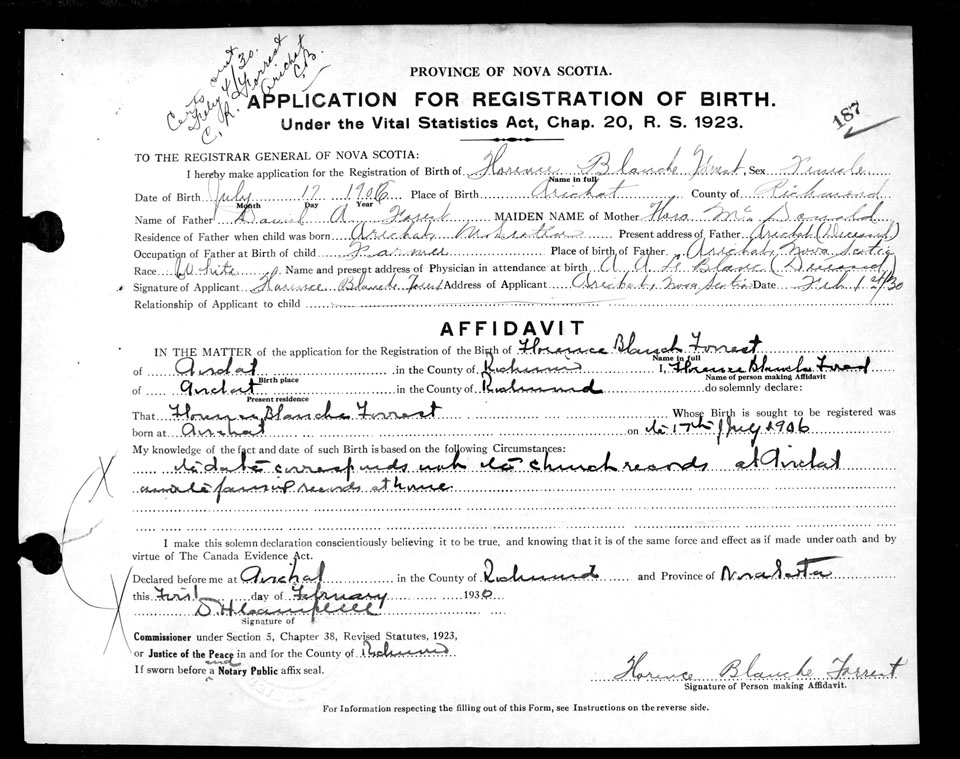 Certs out
Feby 4/30.
C. R. Forrest
Arichat
C.B.
PROVINCE OF NOVA SCOTIA.
APPLICATION FOR REGISTRATION OF BIRTH.
187
Under the Vital Statistics Act, Chap. 20, R. S. 1923.
TO THE REGISTRAR GENERAL OF NOVA SCOTIA:
I hereby make application for the Registration of Birth of Florence Blanche Forrest, Sex Female
Name in full
Date of Birth July 17 1906 Place of Birth Arichat County of Richmond
Month Day Year
Name of Father David A Forest MAIDEN NAME of Mother Flora Mc Donald
Residence of Father when child was born Arichat, N Scotia Present address of Father Arichat (Deceased)
Occupation of Father at Birth of child Farmer Place of birth of Father Arichat, Nova Scotia
Race White Name and present address of Physician in attendance at birth A A Le Blanc (Deceased)
Signature of Applicant Florence Blanche Forrest Address of Applicant Arichat, Nova Scotia Date Feb 1st/30
Relationship of Applicant to child
AFFIDAVIT
IN THE MATTER of the application for the Registration of the Birth of Florence Blanch Forrest
Name in full
of Arichat in the County of Richmond I, Florence Blanche Forrest
Birth place Name of person making Affidavit
of Arichat in the County of Richmond do solemnly declare:
Present residence
That Florence Blanche Forrest Whose Birth is sought to be registered was
born at Arichat on the 17th July 1906
My knowledge of the fact and date of such Birth is based on the following Circumstances:
the date corresponds with the church records at Arichat
family records at home
I make this solemn declaration conscientiously believing it to be true, and knowing that it is of the same force and effect as if made under oath and by
virtue of The Canada Evidence Act.
Declared before me at Arichat in the County of Richmond and Province of Nova Scotia
this First day of February 1930
D H Campbell
Signature of
Commissioner under Section 5, Chapter 38, Revised Statutes, 1923,
or Justice of the Peace in and for the County of Richmond
and
If sworn before a Notary Public affix seal.
Florence Blanche Forrest
Signature of Person making Affidavit.
For Information respecting the filling out of this Form, see Instructions on the reverse side.